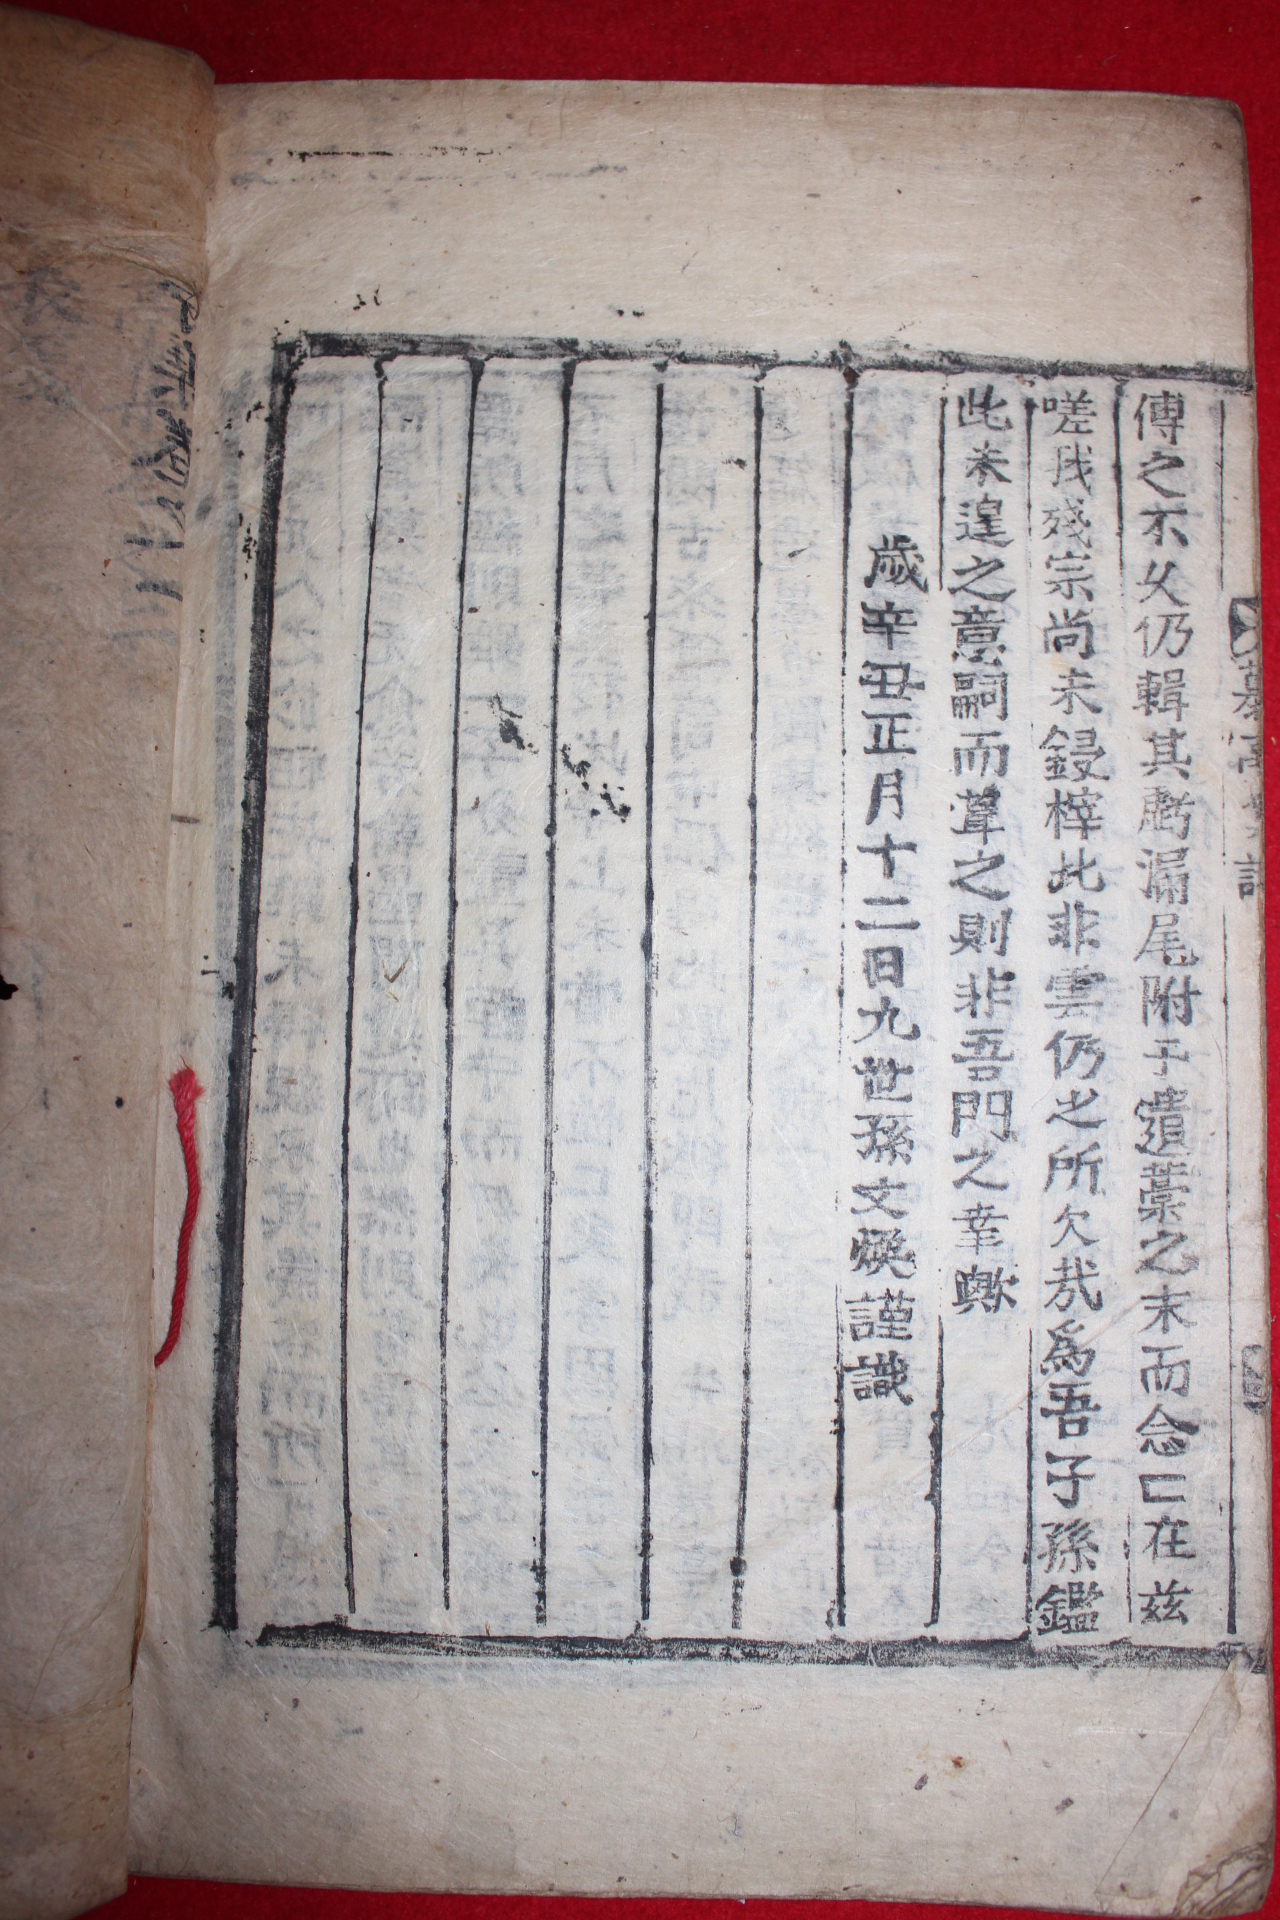 傳之不久仍輯其虧漏尾附于遺藁之末而念亡在玆
嗟我殘宗尚未鋟梓此非雲仍之所欠哉爲吾子孫鑑
此未遑之意嗣而葺之則非吾門之幸歟
歲辛丑正月十二日九世孫文煥謹識